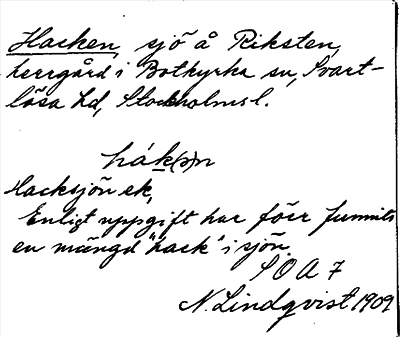 Hacken, sjö å Riksten,
herrgård i Botkyrka sn, Svart-
lösa hd, Stockholms l.
hák(ə)n
Hacksjön ek,
Enligt uppgift har förr funnits
en mängd "hack" i sjön.
SOA 7
N. Lindqvist 1909